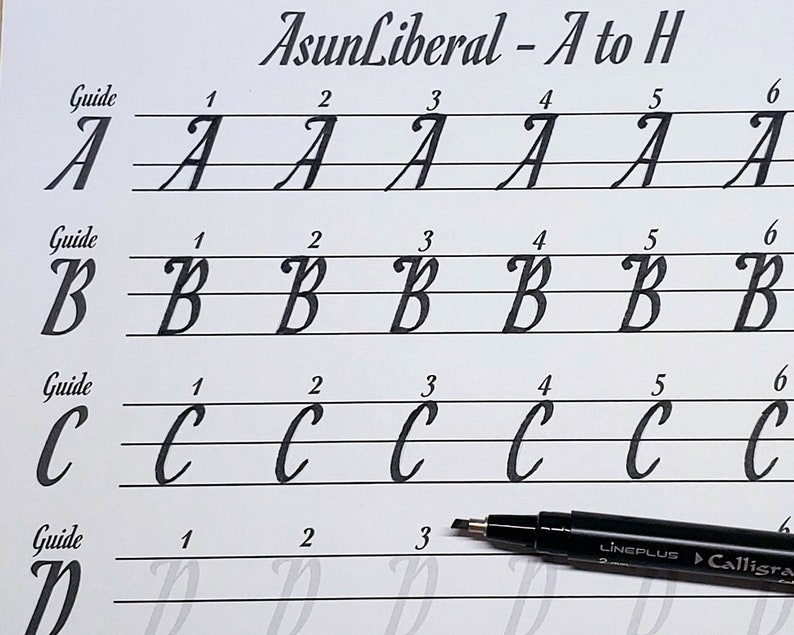 AsunLiberal - A to H
Guide 1 2 3 4 5 6
A A A A A A A
Guide 1 2 3 4 5 6
B B B B B B B
Guide 1 2 3 4 5 6
C C C C C C C
Guide 1 2 3 6
D D D D D D D
LINEPLUS
2 mm